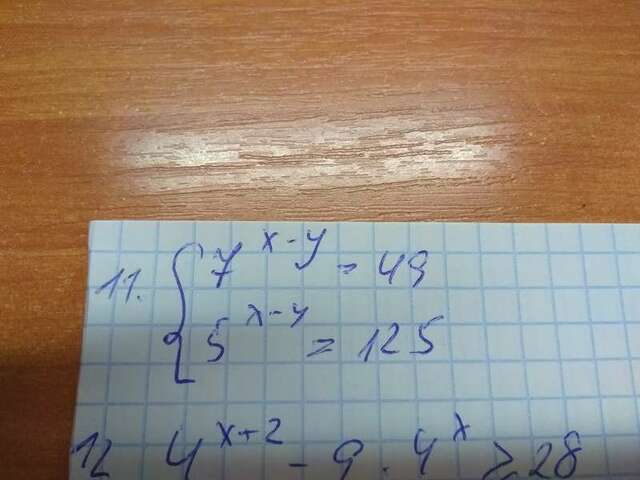 11. { 7^{x-y} = 49
5^{x-y} = 125
12 4^{x+2} - 9 · 4^{x} ≥ 28